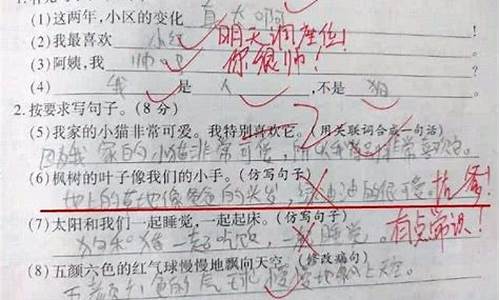 (1)这两年,小区的变化 真大啊
(2)我最喜欢 小红 明天调座位!
(3)阿姨,我 帅吗 你很帅!
(4) 我 是 人 ,不是 狗
2.按要求写句子。(8 分)
(5)我家的小猫非常可爱。我特别喜欢它。(用关联词合成一句话)
因为我家的小猫非常可爱,所以我特别非常喜欢它。
(6)枫树的叶子像我们的小手。(仿写句子)
地上的草地像爸爸的头发,绿油油的很可爱。抗议!
(7)太阳和我们一起睡觉,一起起床。(仿写句子)
狗和猪一起吃饭,一起睡觉。 有点常识!
(8)五颜六色的红气球慢慢地飘向天空。(修改病句)
五颜六色的气球慢慢地飘上天空。